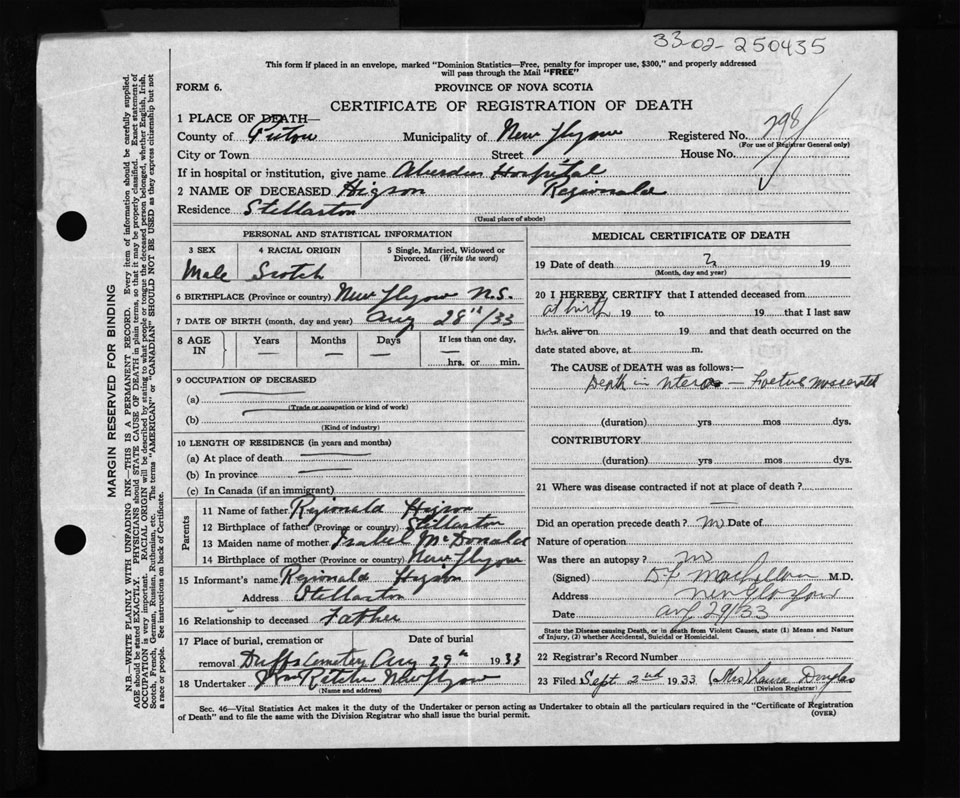 33-02-250435
This form if placed in an envelope, marked "Dominion Statistics—Free, penalty for improper use, $300," and properly addressed
will pass through the Mail "FREE"
FORM 6.
PROVINCE OF NOVA SCOTIA
CERTIFICATE OF REGISTRATION OF DEATH
1 PLACE OF DEATH—
County of Pictou Municipality of New Glasgow Registered No. 798
(For use of Registrar General only)
City or Town Street House No.
If in hospital or institution, give name Aberdeen Hospital
2 NAME OF DECEASED Higson Reginald
Residence Stellarton
(Usual place of abode)
PERSONAL AND STATISTICAL INFORMATION
3 SEX 4 RACIAL ORIGIN 5 Single, Married, Widowed or Divorced. (Write the word)
Male Scotch
6 BIRTHPLACE (Province or country) New Glasgow N.S.
7 DATE OF BIRTH (month, day and year) Aug 28th/33
8 AGE IN Years Months Days If less than one day,
hrs. or min.
9 OCCUPATION OF DECEASED
(a)
(Trade or occupation or kind of work)
(b)
(Kind of industry)
10 LENGTH OF RESIDENCE (in years and months)
(a) At place of death
(b) In province
(c) In Canada (if an immigrant)
Parents
11 Name of father Reginald Higson
12 Birthplace of father (Province or country) Stellarton
13 Maiden name of mother Isabel McDonald
14 Birthplace of mother (Province or country) New Glasgow
15 Informant's name Reginald Higson
Address Stellarton
16 Relationship to deceased Father
17 Place of burial, cremation or removal Date of burial
Duffs Cemetery Aug 29th 1933
18 Undertaker Ritchie New Glasgow
(Name and address)
MEDICAL CERTIFICATE OF DEATH
19 Date of death 2 19
(Month, day and year)
20 I HEREBY CERTIFY that I attended deceased from
at birth 19 to 19 that I last saw
h alive on 19 and that death occurred on the
date stated above, at m.
The CAUSE of DEATH was as follows:—
Death in utero — Foetus macerated
(duration) yrs mos dys.
CONTRIBUTORY
(duration) yrs mos dys.
21 Where was disease contracted if not at place of death?
Did an operation precede death? no Date of
Nature of operation
Was there an autopsy? no
(Signed) M.D.
Address New Glasgow
Date Aug 29/33
State the Disease causing Death, or in death from Violent Causes, state (1) Means and Nature of Injury, (2) whether Accidental, Suicidal or Homicidal.
22 Registrar's Record Number
23 Filed Sept 2nd 1933 (Mrs) Laura Douglas
(Division Registrar)
Sec. 46—Vital Statistics Act makes it the duty of the Undertaker or person acting as Undertaker to obtain all the particulars required in the "Certificate of Registration
of Death" and to file the same with the Division Registrar who shall issue the burial permit.
(OVER)
MARGIN RESERVED FOR BINDING
N.B.—WRITE PLAINLY WITH UNFADING INK—THIS IS A PERMANENT RECORD. Every item of information should be carefully supplied.
AGE should be stated EXACTLY. PHYSICIANS should STATE CAUSE OF DEATH in plain terms, so that it may be properly classified. Exact statement of
OCCUPATION is very important. RACIAL ORIGIN will be described by stating to what people or tongue the deceased person belonged, whether English, Irish,
Scotch, French, German, Russian, Ruthenian, etc. The terms "AMERICAN" or "CANADIAN" SHOULD NOT BE USED as they express citizenship but not
a race or people. See instructions on back of Certificate.